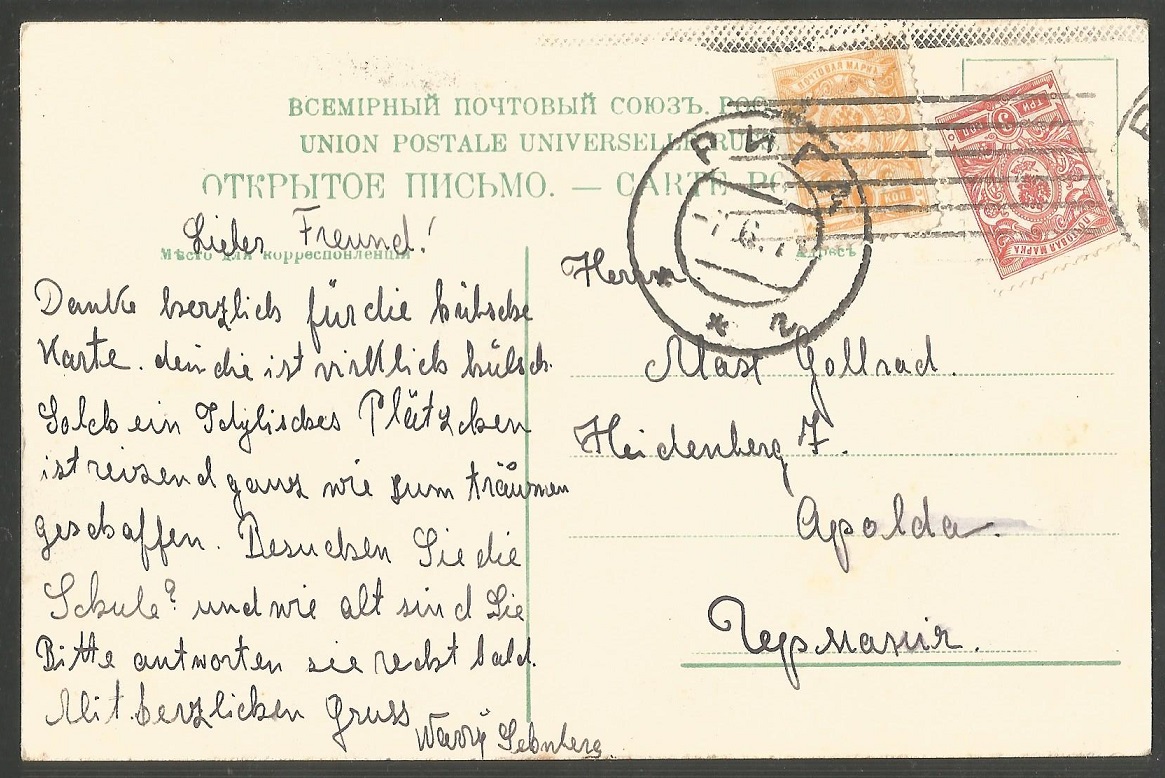 ВСЕМІРНЫЙ ПОЧТОВЫЙ СОЮЗЪ. РОС
UNION POSTALE UNIVERSELLE RU
ОТКРЫТОЕ ПИСЬМО. — CARTE PO
Мѣсто для корреспонденціи
Адресъ
ПОЧТОВАЯ МАРКА
КОП
ТРИ
3
КОП
ПОЧТОВАЯ МАРКА
РИГА
2
Lieber Freund!
Danke herzlich für die hübsche
Karte. den die ist wirklich hübsch.
Solch ein Idylisches Plätzchen
ist reizend ganz wie zum träumen
geschaffen. Besuchen Sie die
Schule? und wie alt sind Sie
Bitte antworten sie recht bald.
Mit herzlichen Gruss
Herrn
Max Gollrad.
Heidenberg 7.
Apolda.
Германія.